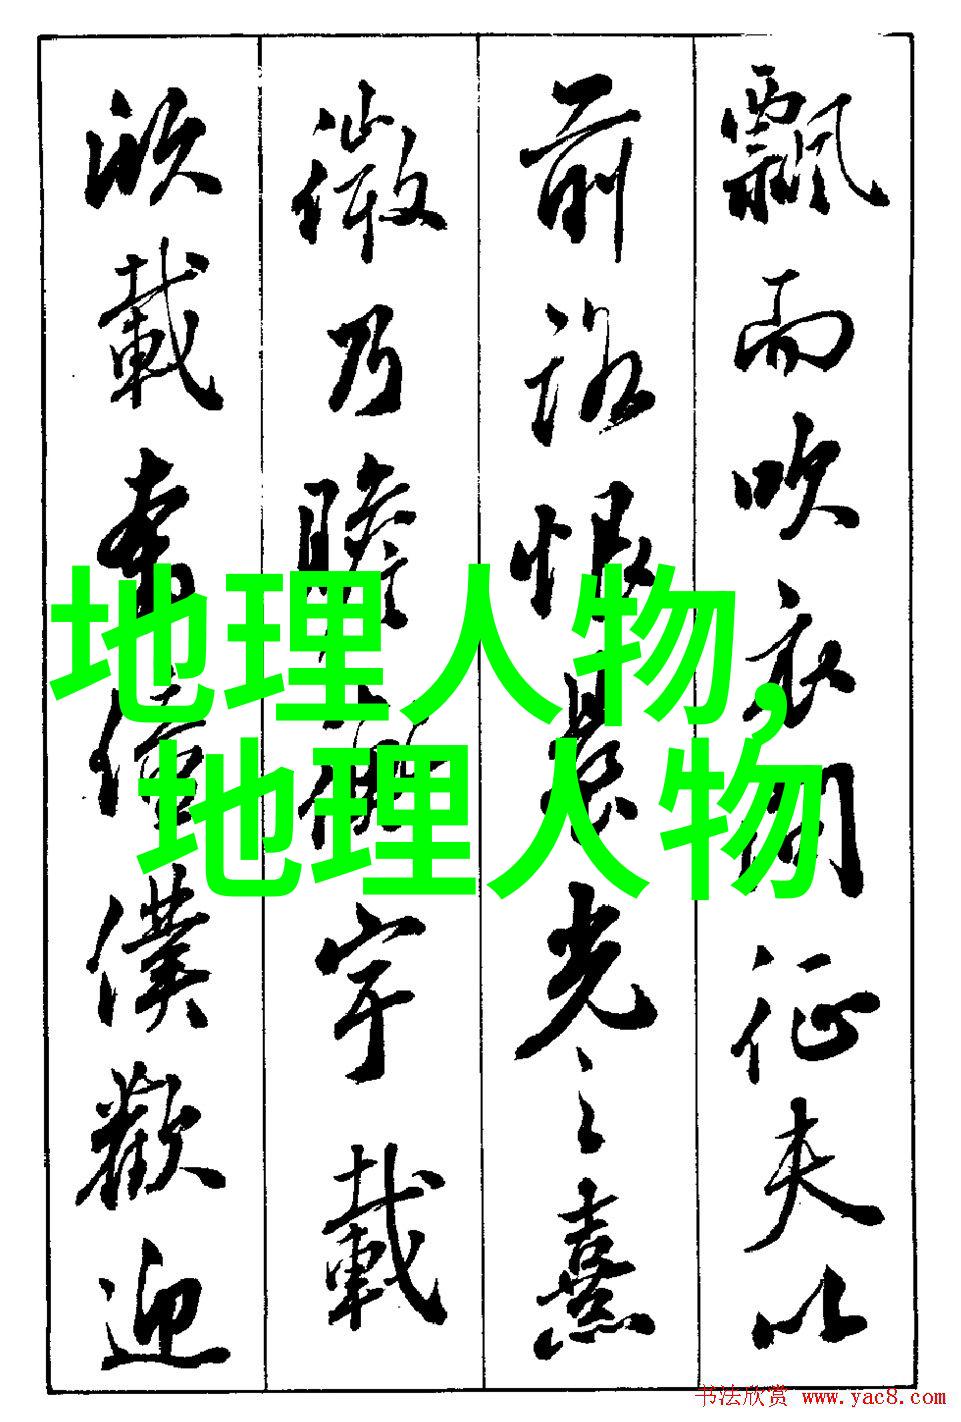 飄而吹衣問征夫以
前路恨晨光之熹
微乃瞻衡宇載
欣載奔僮僕歡迎
地理人物,
地理人物
书法欣赏 www.yac8.com